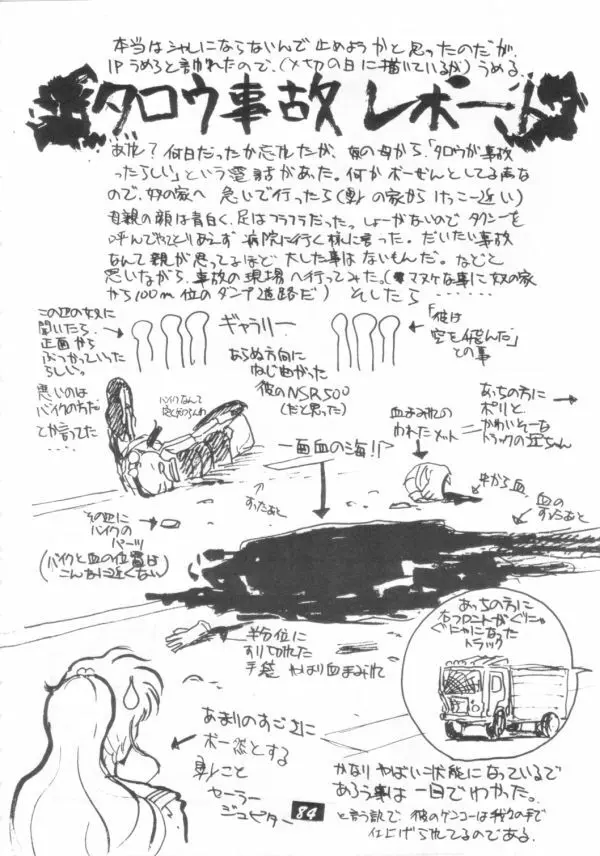 本当はシャレにならないんで止めようかと思ったのだが、
1Pうめろと言われたので、(〆切の日に描いているが)うめる。
タロウ事故レポート
あれ?何日だったか忘れたが、奴の母から、「タロウが事故
ったらしい」という電話があった。何かボーぜんとしてる声な
ので、奴の家へ 急いで行ったら
の家からけっこー近い)
母親の顔は青白く、足はフラフラだった。しょーがないのでタクシーを
呼んでやってとりあえず病院に行く様に言った。だいたい事故
なんて親が思ってるほど大した事はないもんだ。などと
思いながら、事故の現場へ行ってみた。
マヌケな事に奴の家
から100m位のダンプ道路だ) そしたら ……
この辺の奴に
聞いたら、
正面から
ぶつかっていった
らしい。
悪いのは
バイクの方だ
とか言ってた
ギャラリー
「彼は
空を飛んだ」
との事
あらぬ方向に
ねじ曲がった
彼のNSR500
(だと思った)
バイクなんて
血まみれの
われたメット
あっちの方に
ポリと
かわいそーな
トラックの運ちゃん
一面血の海!!
中から血
血の
すったあと
その辺に
バイクの
パーツ
(バイクと血の位置は
こんなに近くない)
半分位に
すり切れた
手袋 やはり血まみれ
あっちの方に
右フロントがぐにゃ
ぐにゃになった
トラック
あまりのすごさに
ボー然とする
こと
セーラー
ジュピター
かなりやばい状態になっているで
あろう事は一目でわかった。
と言う訳で、彼のゲンコーは我々の手で
仕上げられてるのである。
84